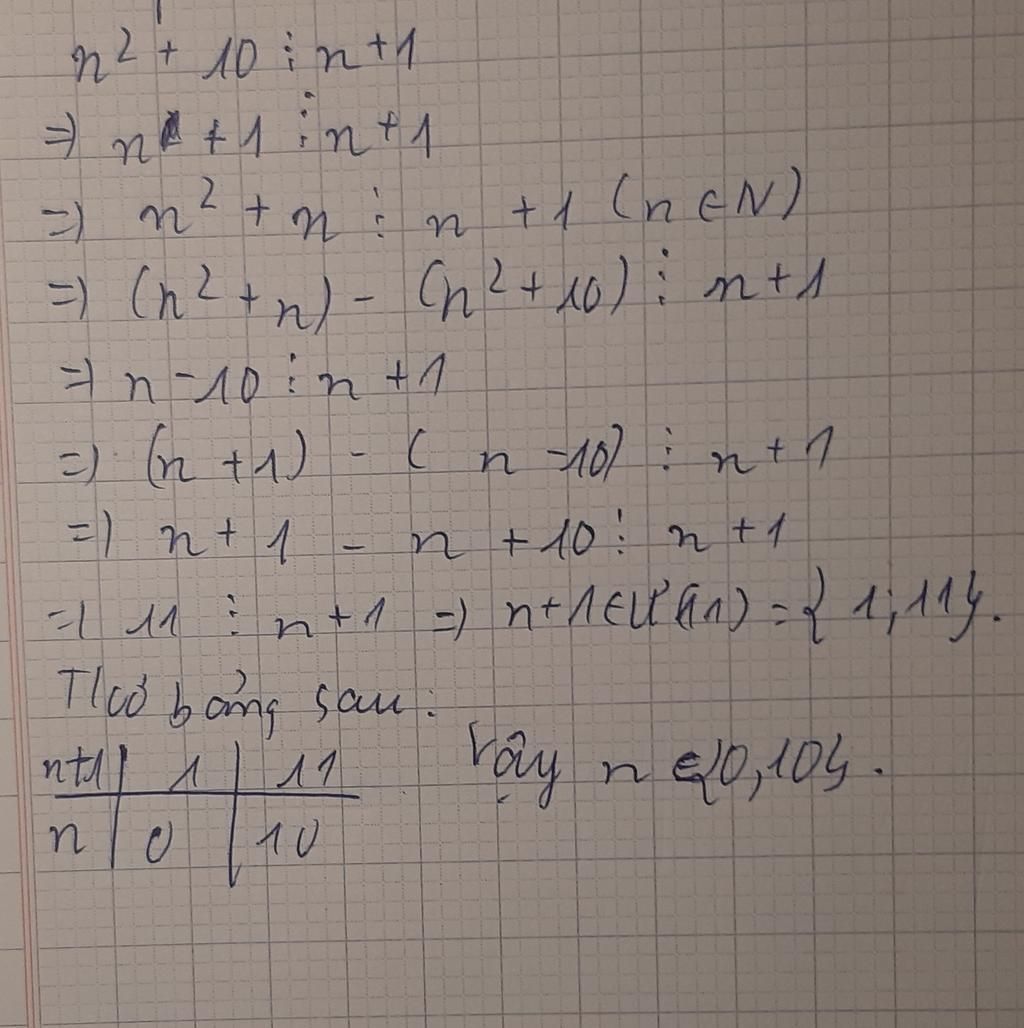 n² + 10 ⋮ n+1
=) n + 1 ⋮ n+1
=) n² + n ⋮ n + 1 (n ∈ N)
=) (n² + n) - (n² + 10) ⋮ n+1
=) n - 10 ⋮ n + 1
=) (n + 1) - ( n - 10) ⋮ n + 1
=) n + 1 - n + 10 ⋮ n + 1
=) 11 ⋮ n + 1 =) n+1 ∈ Ư(11) = { 1; 11}.
Tlcó bảng sau:
n+1 | 1 | 11 Vậy n ∈ {0, 10}.
n | 0 | 10